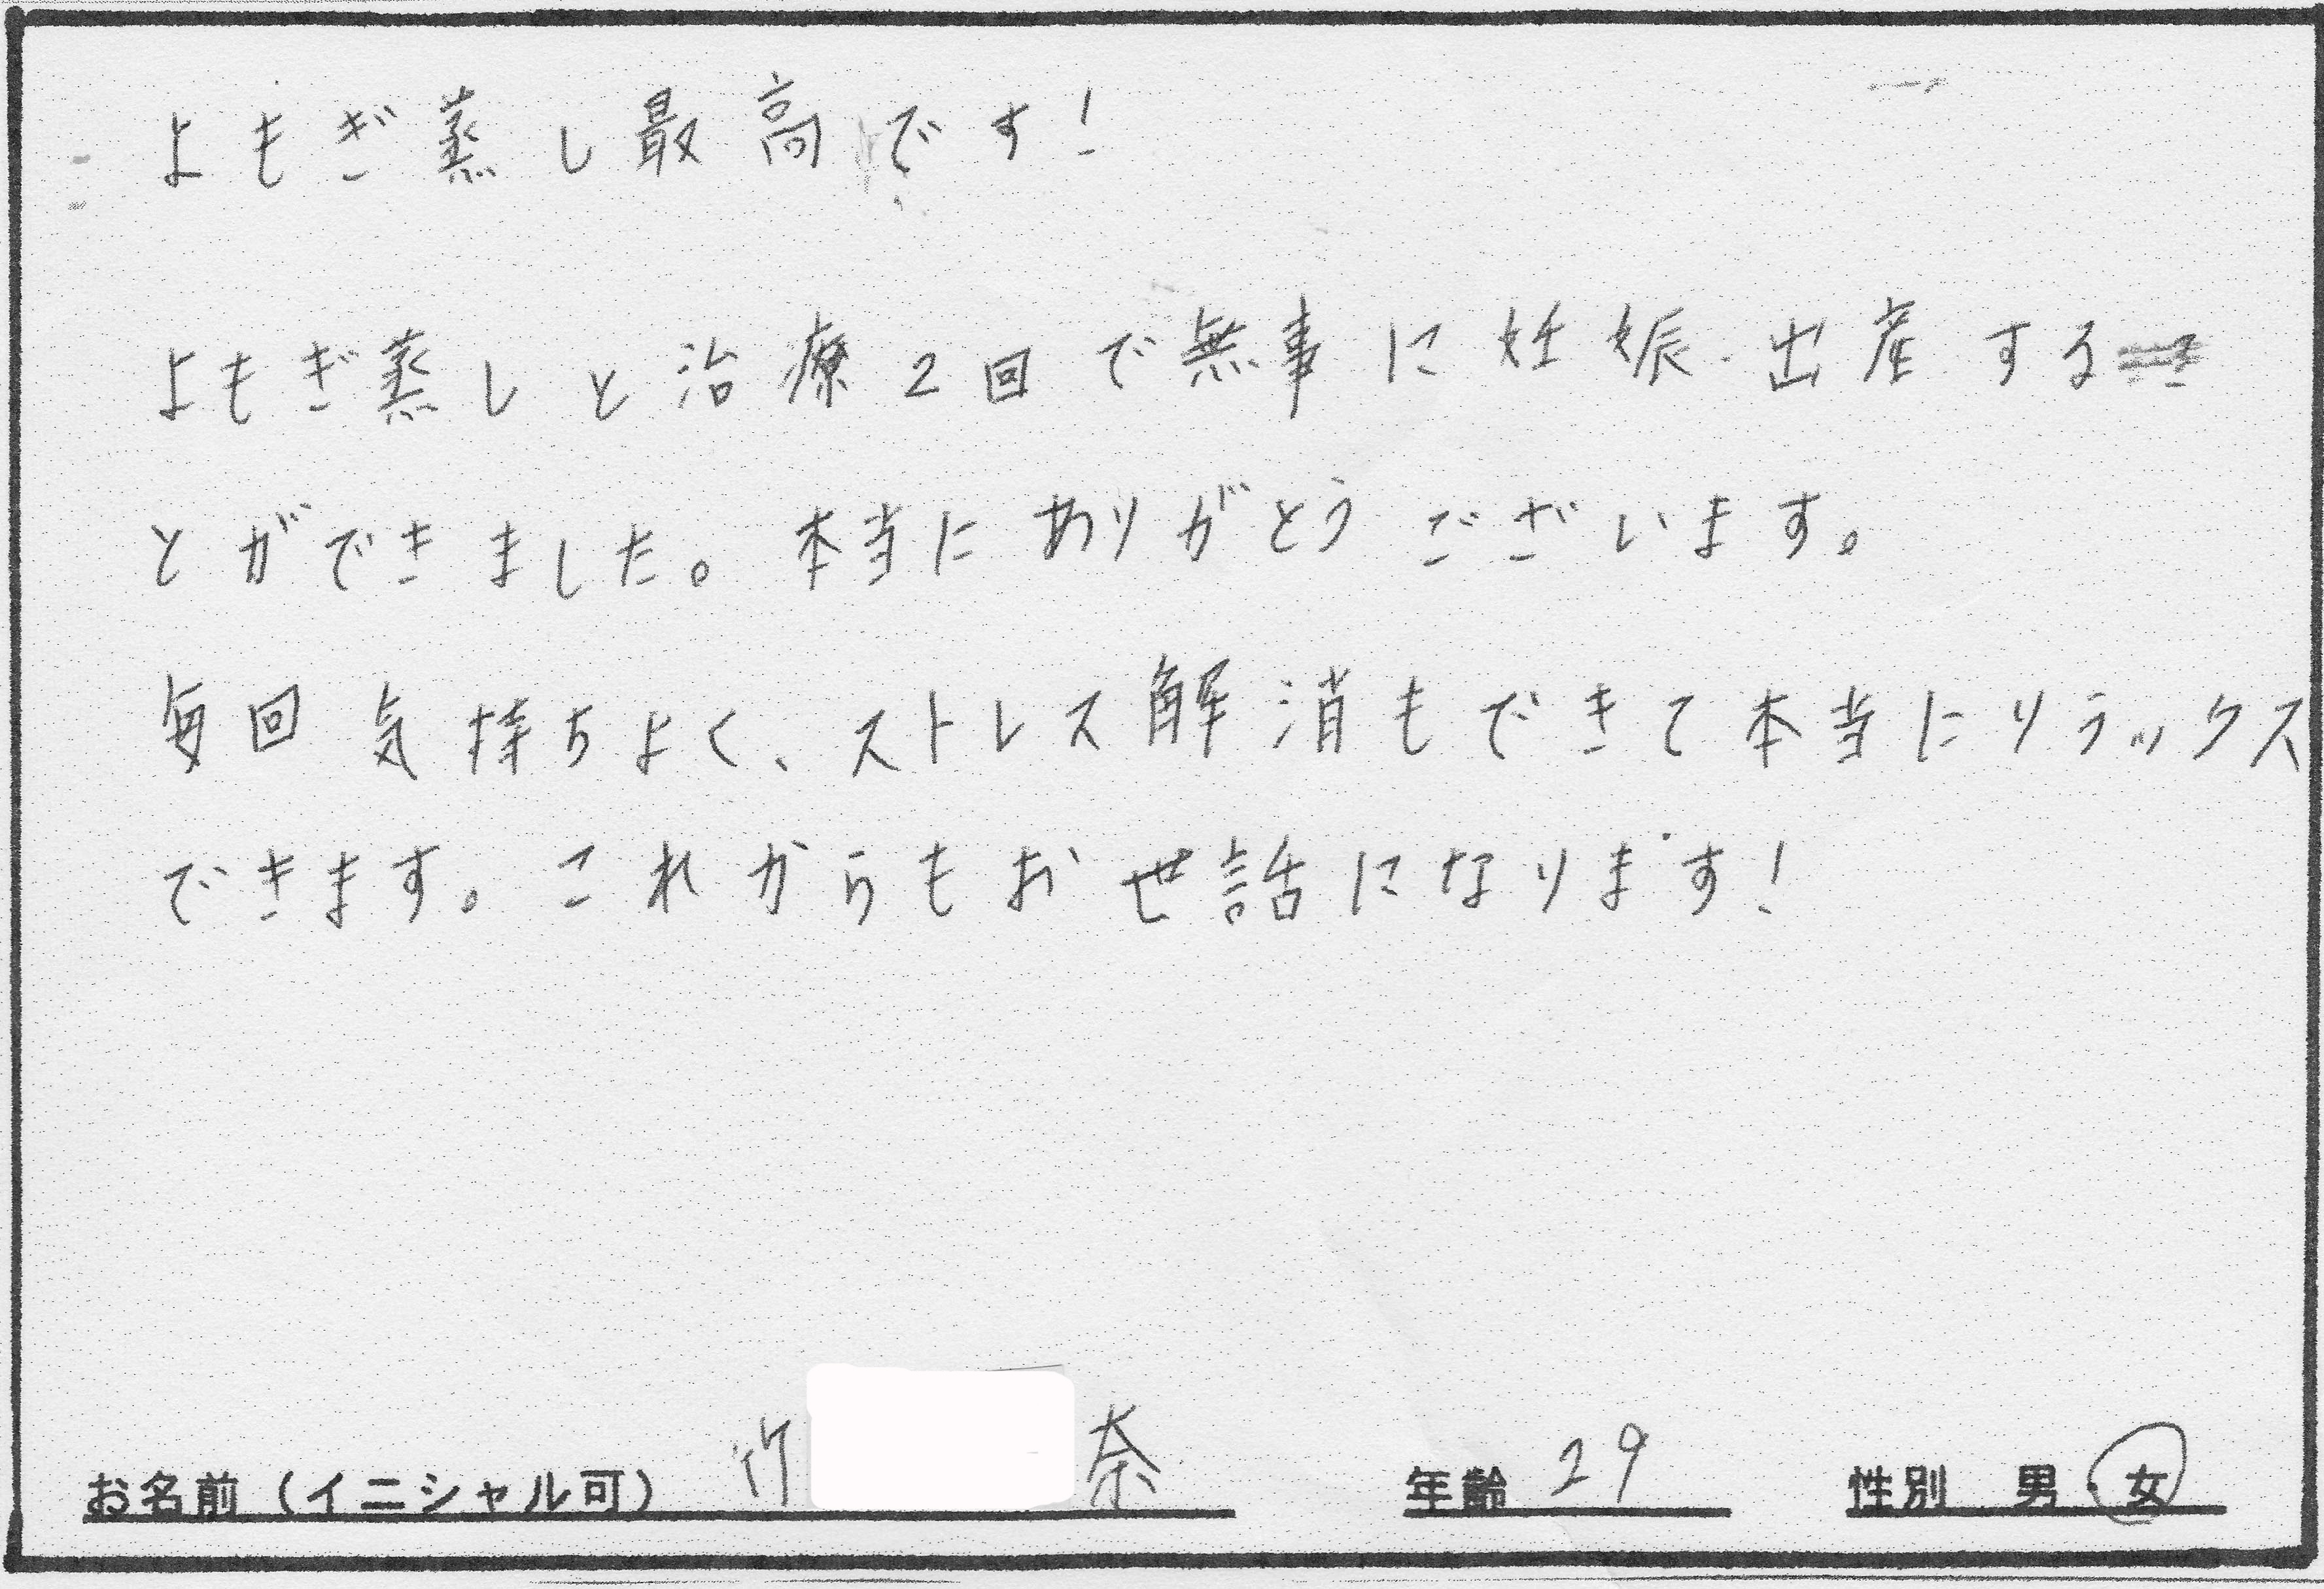 よもぎ蒸し最高です!
よもぎ蒸しと治療2回で無事に妊娠・出産するこ
とができました。本当にありがとうございます。
毎回気持ちよく、ストレス解消もできて本当にリラックス
できます。これからもお世話になります!
お名前(イニシャル可) 竹 奈 年齢 29 性別 男 女